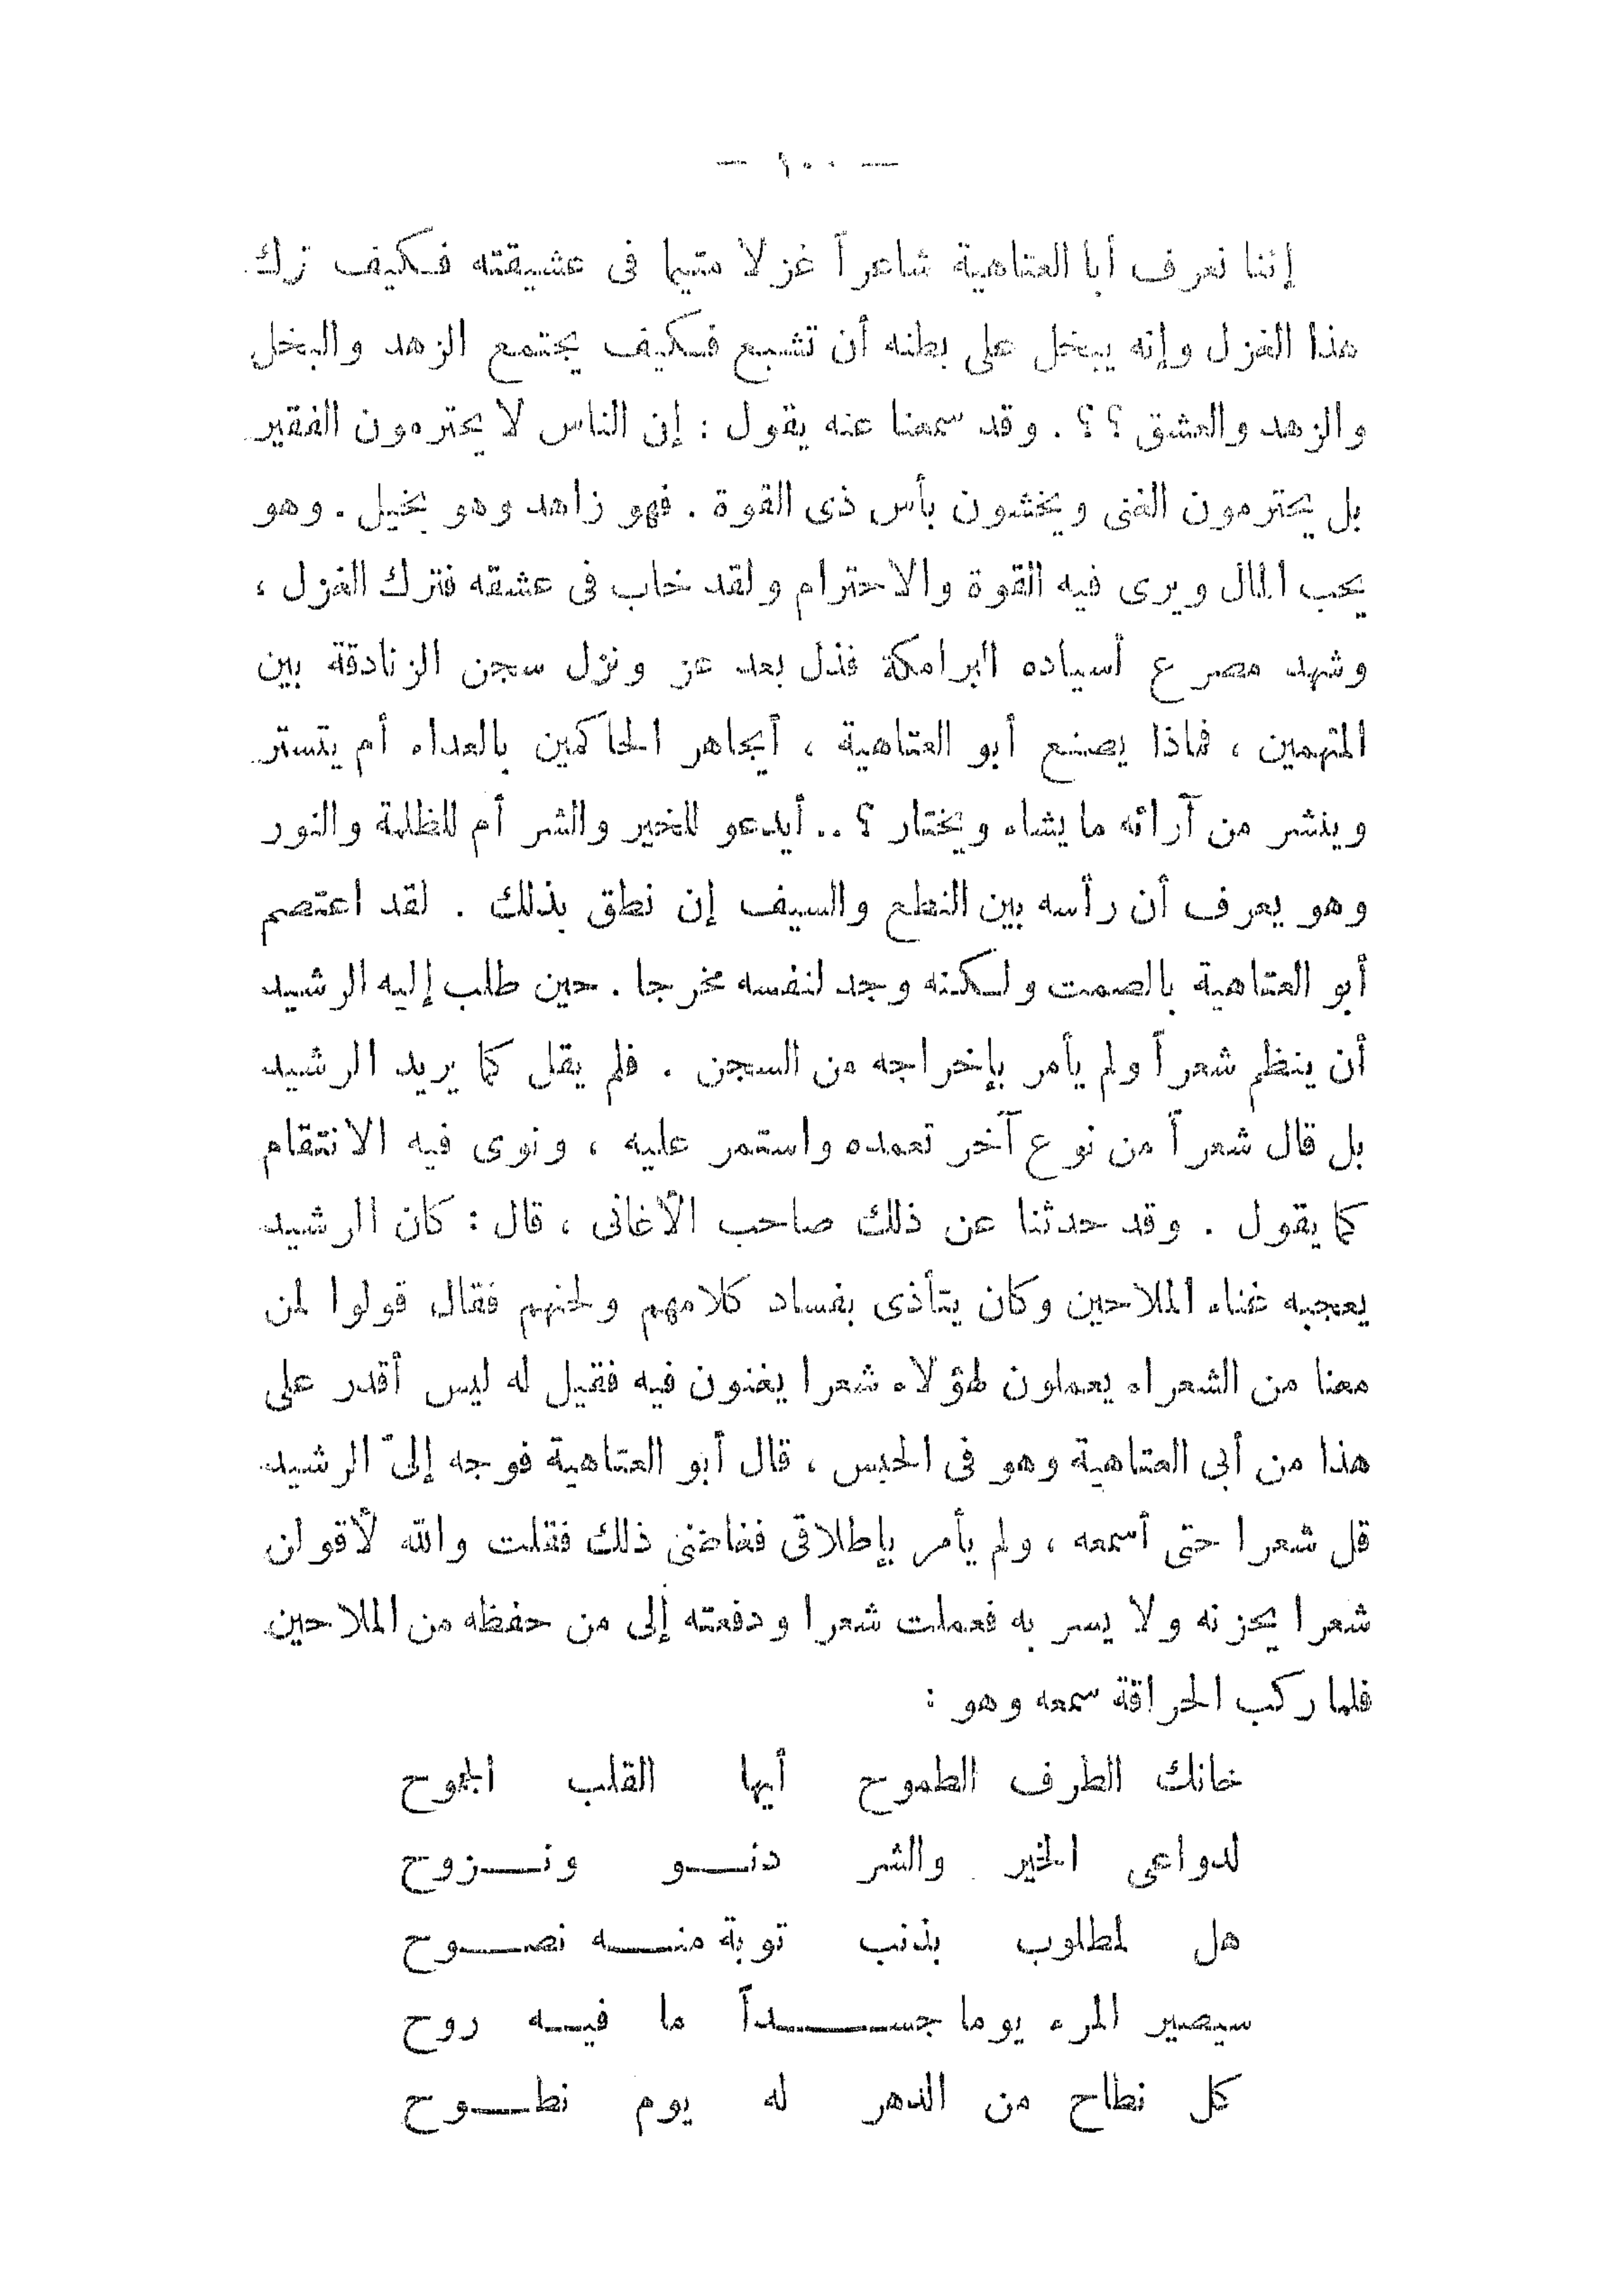 — ١٠٠ —
إننا نعرف أبا العتاهية شاعراً غزلا متيما فى عشيقته فكيف ترك
هذا الغزل وإنه يبخل على بطنه أن تشبع فكيف يجتمع الزهد والبخل
والزهد والعشق ؟؟ . وقد سمعنا عنه يقول : إن الناس لا يحترمون الفقير
بل يحترمون الغنى ويخشون بأس ذى القوة . فهو زاهد وهو بخيل . وهو
يحب المال ويرى فيه القوة والاحترام ولقد خاب فى عشقه فترك الغزل ،
وشهد مصرع أسياده البرامكة فذل بعد عز ونزل سجن الزنادقة بين
المتهمين ، فماذا يصنع أبو العتاهية ، أيجاهر الحاكمين بالعداء أم يتستر
وينشر من آرائه ما يشاء ويختار ؟ .. أيدعو للخير والشر أم للظلمة والنور
وهو يعرف أن رأسه بين النطع والسيف إن نطق بذلك . لقد اعتصم
أبو العتاهية بالصمت ولكنه وجد لنفسه مخرجا . حين طلب إليه الرشيد
أن ينظم شعراً ولم يأمر بإخراجه من السجن . فلم يقل كما يريد الرشيد
بل قال شعراً من نوع آخر تعمده واستمر عليه ، ونوى فيه الانتقام
كما يقول . وقد حدثنا عن ذلك صاحب الأغانى ، قال : كان الرشيد
يعجبه غناء الملاحين وكان يتأذى بفساد كلامهم ولحنهم فقال قولوا لمن
معنا من الشعراء يعملون لهؤلاء شعرا يغنون فيه فقيل له ليس أقدر على
هذا من أبى العتاهية وهو فى الحبس ، قال أبو العتاهية فوجه إلىّ الرشيد
قل شعرا حتى أسمعه ، ولم يأمر بإطلاقى فغاضنى ذلك فقلت والله لأقولن
شعرا يحزنه ولا يسر به فعملت شعرا ودفعته إلى من حفظه من الملاحين
فلما ركب الحراقة سمعه وهو :
خانك الطرف الطموح أيها القلب الجموح
لدواعى الخير والشر دنو ونزوح
هل لمطلوب بذنب توبة منه نصوح
سيصير المرء يوما جسداً ما فيه روح
كل نطاح من الدهر له يوم نطوح